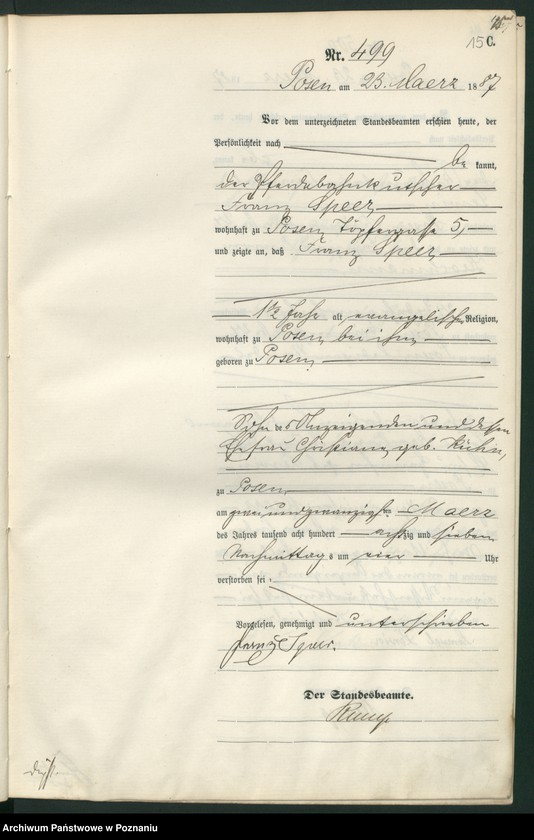 15 C.
Nr. 499
Posen am 23. Maerz 1887
Vor dem unterzeichneten Standesbeamten erschien heute, der
Persönlichkeit nach
be kannt,
der Pferdebahnkutscher
Franz Speer
wohnhaft zu Posen, Töpfergasse 5,
und zeigte an, daß Franz Speer
1 1/2 Jahr alt evangelischer Religion,
wohnhaft zu Posen bei ihm
geboren zu Posen,
Sohn des Anzeigenden und dessen
Ehefrau Christiane geb. Kühn,
zu Posen
am zwei und zwanzigsten Maerz
des Jahres tausend acht hundert achtzig und sieben
Nachmittags um vier Uhr
verstorben sei.
Vorgelesen, genehmigt und unterschrieben
Franz Speer.
Der Standesbeamte.
Archiwum Państwowe w Poznaniu